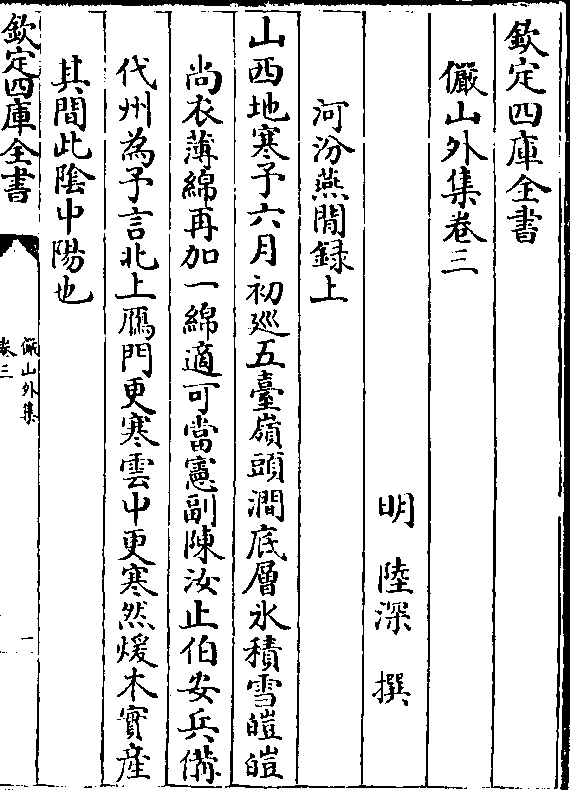 欽定四庫全書
儼山外集卷三
明 陸深 撰
河汾燕閒録上
山西地寒予六月初廵五臺嶺頭澗底層氷積雪皚皚
尚衣薄綿再加一綿適可當憲副陳汝止伯安兵備
代州為予言北上鴈門更寒雲中更寒然煖木實産
其間此陰中陽也
欽定四庫全書
儼山外集
卷三
一